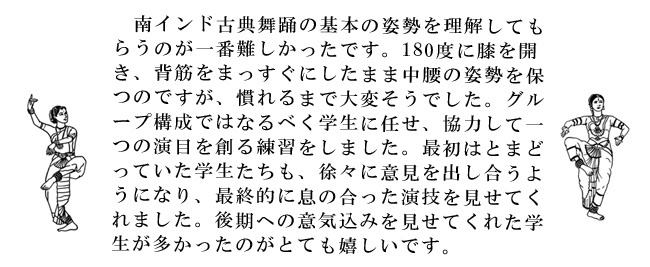 南インド古典舞踊の基本の姿勢を理解しても
らうのが一番難しかったです。180度に膝を開
き、背筋をまっすぐにしたまま中腰の姿勢を保
つのですが、慣れるまで大変そうでした。グル
ープ構成ではなるべく学生に任せ、協力して一
つの演目を創る練習をしました。最初はとまど
っていた学生たちも、徐々に意見を出し合うよ
うになり、最終的に息の合った演技を見せてく
れました。後期への意気込みを見せてくれた学
生が多かったのがとても嬉しいです。